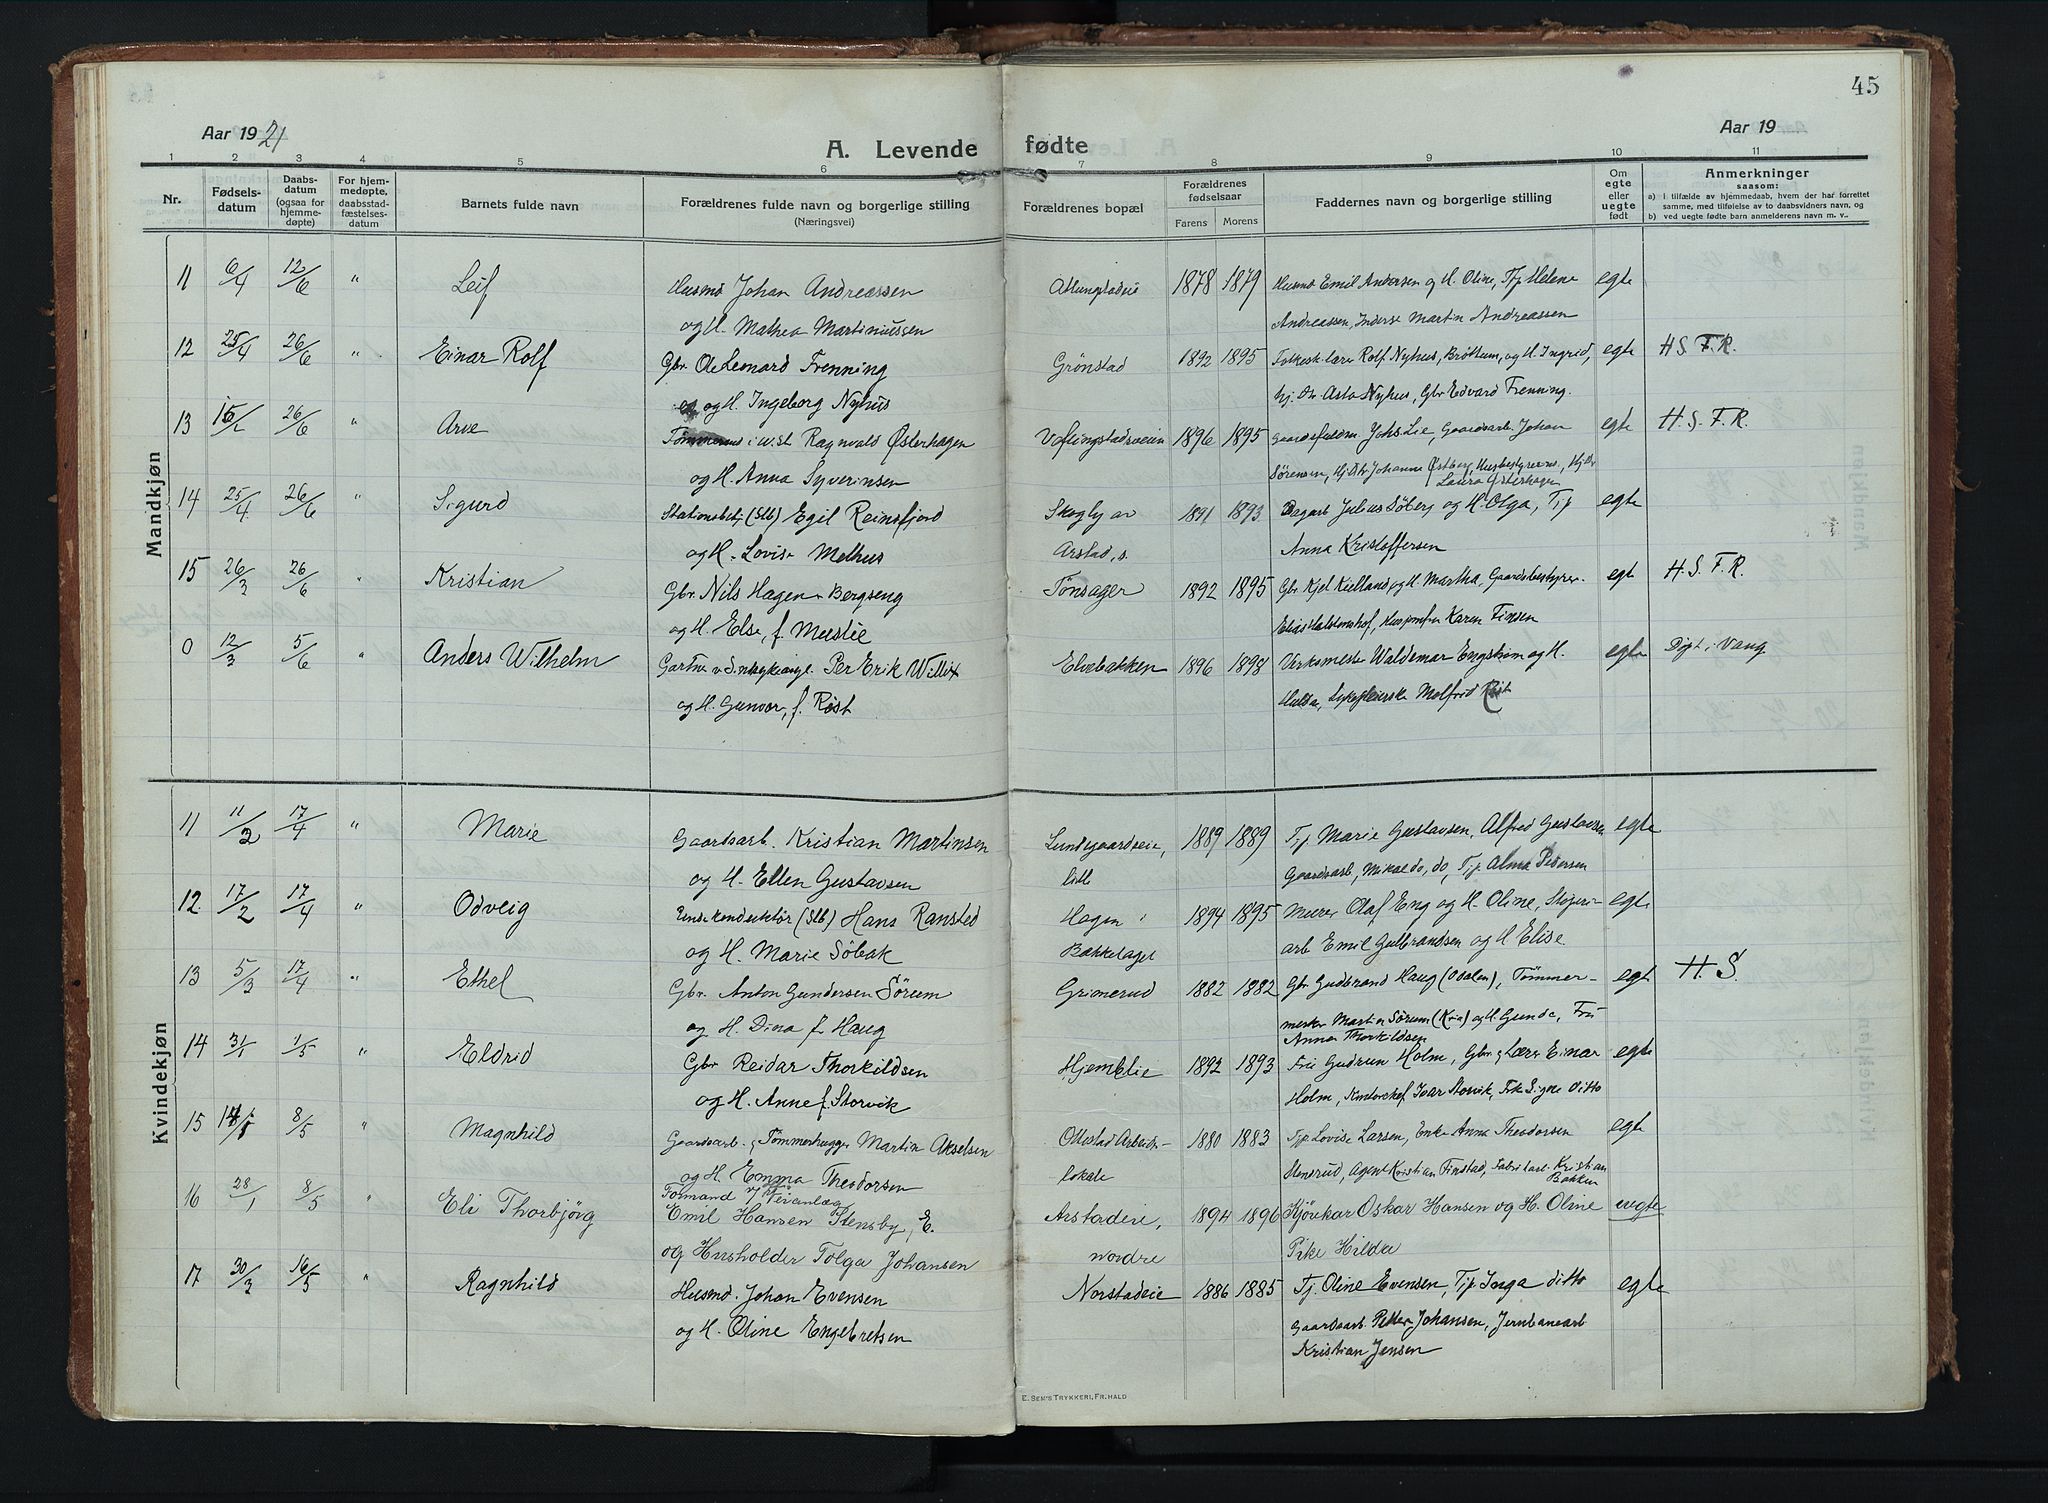 45
Aar 1921
A. Levende fødte
Aar 19
1 2 3 4 5 6 7 8 9 10 11
Nr.
Fødsels-
datum
Daabs-
datum
(ogsaa for
hjemme-
døpte)
For hjem-
medøpte,
daabsstad-
fæstelses-
datum
Barnets fulde navn
Forældrenes fulde navn og borgerlige stilling
(Næringsvei)
Forældrenes bopæl
Forældrenes
fødselsaar
Farens Morens
Faddernes navn og borgerlige stilling
Om
egte
eller
uegte
født
Anmerkninger
saasom:
a) I tilfælde av hjemmedaab, hvem der har forrettet
samme, med tilføielse av to daabsvidners navn, og
b) ved uegte fødte barn anmelderens navn m. v..
Mandkjøn
11 6/4 12/6 " Leif Husmd Johan Andreassen 1878 1879 Husmd Emil Andersen og H. Oline, Tjp Helene egte
og H. Mathea Martinussen Andreassen, Inderst Martin Andreassen
12 25/4 26/6 " Einar Rolf Gbr. Ole Leonard Frenning Grönstad 1892 1895 Folkesk.lærer Rolf Nyhus, Brøttum, og H. Ingrid, egte H. S. F. R.
og H. Ingeborg Nyhus Hj. Dtr Asta Nyhus, Gbr Edvard Frenning.
13 26/6 " Arve Ragnvald Østerhagen 1896 1895 Johs. Lie, Gaardsarb. Johan egte H. S. F. R.
og H. Anna Syverinsen Sørensen, Hj. Dtr Johanne Østberg, Husbestyrerinne, Hj. Dtr
Laura Østerhagen
14 25/4 26/6 " Sigurd Stationsbetj (Stb) Egil Reinsfjord Skogly av 1891 1893 Dagarb Julius Söberg og H. Olga, Tjp egte
og H. Lovise Melhus Arstad, s. Anna Kristoffersen
15 26/3 26/6 " Kristian Gbr. Nils Hagen Bergseng Tönsager 1892 1895 Gbr. Kjel Kielland og H. Martha, Gaardsbestyrer egte H. S. F. R.
og H. Else, f. Mustie Karen Finsen
0 12/3 5/6 " Anders Wilhelm Per Erik Willix Elvebakken 1896 1898 Verksmester Waldemar Engström og H. egte Döpt i Vang
og H. Gunvor, f. Röst Hulda, Sykepleierske Melfrid Röst
Kvindekjøn
11 11/2 17/4 " Marie Gaardsarb. Kristian Martinsen Lundgaardseie, 1889 1889 Tjp Marie Gustavsen, Alfred Gustavsen egte
og H. Ellen Gustavsen lille Gaardsarb, Mikal do, do, Tjp. Alma Pedersen
12 17/2 17/4 " Odveig (Stb) Hans Ransted Hagen i 1894 1895 Murer Olaf Eng og H. Oline, egte
og H. Marie Söbak Bækkelaget arb Emil Gulbrandsen og H Elise.
13 5/3 17/4 " Ethel Gbr. Anton Gundersen Sörum Grimerud 1882 1882 Gbr Gudbrand Haug (Odalen), Tømmer- egte H. S.
og H. Dina f. Haug mester Martin Sörum (Kria) og H. Gunda, Fru
Anna Thorkildsen
14 31/1 1/5 " Eldrid Gbr Reidar Thorkildsen Hjemlie 1892 1893 Fru Gudrun Holm, Gbr og Lærer Einar egte
og H. Anne f. Storvik Holm, Kontorchef Ivar Storvik, Frk Signe ditto
15 8/5 " Magnhild Gaardsarb. og Tömmerhugger Martin Akselsen Ottestad Arbeider- 1880 1883 Tjp Lovise Larsen, Enke Anna Theodorsen egte
og H. Emma Theodorsen lokale Stensrud, Agent Kristian Finstad, Fabrikarb. Kristian
Bakken
16 28/1 8/5 " Eli Thorbjørg Formand v/ Veianlæg
Emil Hansen Stensby, E. Arstadeie, 1894 1896 Kjörekar Oskar Hansen og H. Oline uegte
og Husholder Tolga Johansen nordre Pike Hilda
17 30/3 16/5 " Ragnhild Husmd. Johan Evensen Norstadeie 1886 1885 Tj. Oline Evensen, Tjp Inga ditto egte
og H. Oline Engebretsen Gaardsarb. Petter Johansen, Jernbanearb
Kristian Jensen
E. SEM'S TRYKKERI, FR.HALD